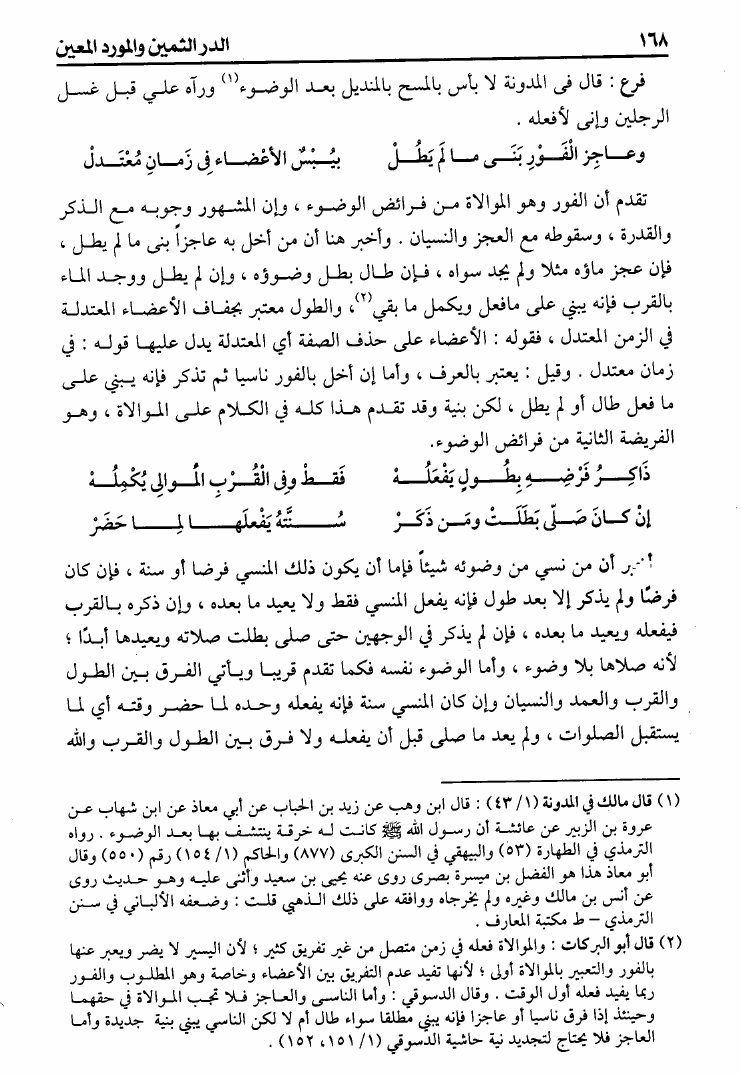 ١٦٨ الدر الثمين والمورد المعين
فرع : قال فى المدونة لا بأس بالمسح بالمنديل بعد الوضوء(١) ورآه علي قبل غسل
الرجلين وإنى لأفعله .
وعاجز الْفَوْرِ بَنَى ما لَمْ يَطُلْ بيُبْسٌ الأعْضاء فِى زَمانِ مُعْتَدلْ
تقدم أن الفور وهو الموالاة من فرائض الوضوء ، وإن المشهور وجوبه مع الذكر
والقدرة ، وسقوطه مع العجز والنسيان . وأخبر هنا أن من أخل به عاجزاً بنى ما لم يطل ،
فإن عجز ماؤه مثلا ولم يجد سواه ، فإن طال بطل وضوؤه ، وإن لم يطل ووجد الماء
بالقرب فإنه يبني على مافعل ويكمل ما بقي(٢)، والطول معتبر بجفاف الأعضاء المعتدلة
في الزمن المعتدل ، فقوله : الأعضاء على حذف الصفة أي المعتدلة يدل عليها قوله : في
زمان معتدل . وقيل : يعتبر بالعرف ، وأما إن أخل بالفور ناسيا ثم تذكر فإنه يبني على
ما فعل طال أو لم يطل ، لكن بنية وقد تقدم هذا كله في الكلام على الموالاة ، وهو
الفريضة الثانية من فرائض الوضوء.
ذَاكِرُ فَرْضِهِ بِطُولٍ يَفْعَلُهْ فَقَطْ وفِى الْقُرْبِ الْمُوالِى يُكْمِلُهْ
إنْ كانَ صَلَّى بَطَلَتْ ومَن ذَكَرْ سُنَّتَهُ يَفْعَلها لِما حَضَرْ
أن من نسي من وضوئه شيئاً فإما أن يكون ذلك المنسي فرضا أو سنة ، فإن كان
فرضًا ولم يذكر إلا بعد طول فإنه يفعل المنسي فقط ولا يعيد ما بعده ، وإن ذكره بالقرب
فيفعله ويعيد ما بعده ، فإن لم يذكر في الوجهين حتى صلى بطلت صلاته ويعيدها أبدًا ؛
لأنه صلاها بلا وضوء ، وأما الوضوء نفسه فكما تقدم قريبا ويأتي الفرق بين الطول
والقرب والعمد والنسيان وإن كان المنسي سنة فإنه يفعله وحده لما حضر وقته أي لما
يستقبل الصلوات ، ولم يعد ما صلى قبل أن يفعله ولا فرق بين الطول والقرب والله
(١) قال مالك في المدونة (٤٣/١) : قال ابن وهب عن زيد بن الحباب عن أبي معاذ عن ابن شهاب عن
عروة بن الزبير عن عائشة أن رسول الله ﷺ كانت له خرقة ينتشف بها بعد الوضوء . رواه
الترمذي في الطهارة (٥٣) والبيهقي في السنن الكبرى (٨٧٧) والحاكم (١٥٤/١) رقم (٥٥٠) وقال
أبو معاذ هذا هو الفضل بن ميسرة بصرى روى عنه يحيى بن سعيد وأثنى عليه وهو حديث روى
عن أنس بن مالك وغيره ولم يخرجاه ووافقه على ذلك الذهبي قلت : وضعفه الألباني في سنن
الترمذي – ط مكتبة المعارف .
(٢) قال أبو البركات : والموالاة فعله في زمن متصل من غير تفريق كثير ؛ لأن اليسير لا يضر ويعبر عنها
بالفور والتعبير بالموالاة أولى ؛ لأنها تفيد عدم التفريق بين الأعضاء وخاصة وهو المطلوب والفور
ربما يفيد فعله أول الوقت . وقال الدسوقي : وأما الناسى والعاجز فلا تجب الموالاة في حقهما
وحينئذ إذا فرق ناسيا أو عاجزا فإنه يبني مطلقا سواء طال أم لا لكن الناسي يبني بنية جديدة وأما
العاجز فلا يحتاج لتجديد نية حاشية الدسوقي (١٥١/١، ١٥٢) .